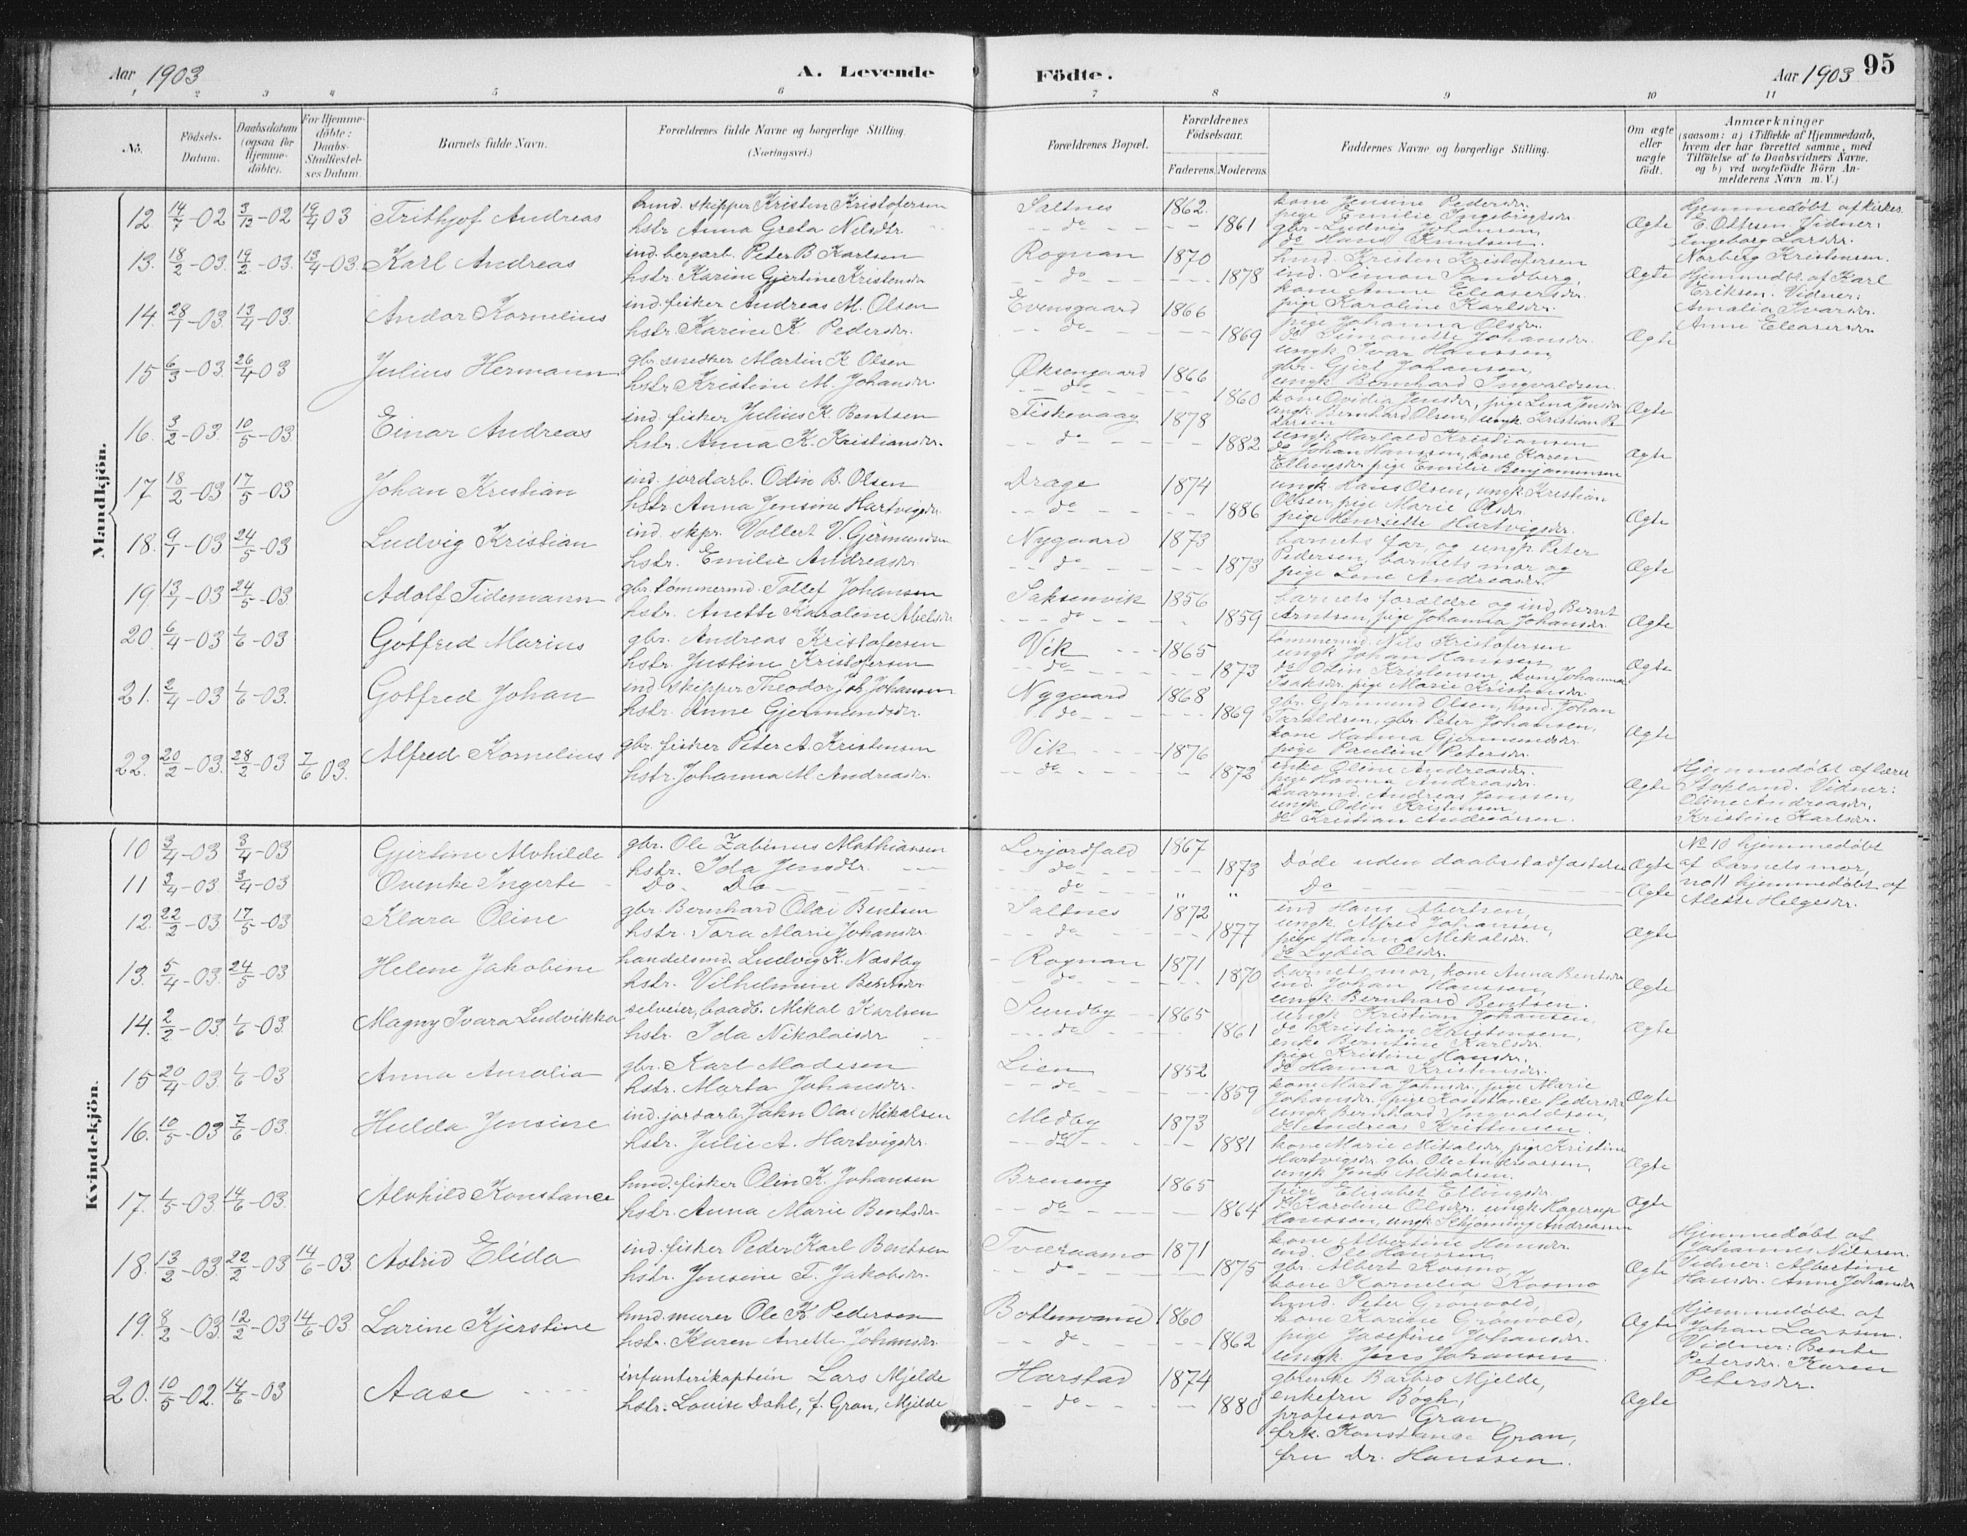 Aar 1903
A. Levende
Födte.
Aar 1903
95
1 2 3 4 5 6 7 8 9 10 11
No.
Födsels-
Datum.
Daabsdatum
(ogsaa for
Hjemme-
döbte).
For Hjemme-
döbte:
Daabs-
Stadfæstel-
ses Datum.
Barnets fulde Navn.
Forældrenes fulde Navne og borgerlige Stilling.
(Næringsvei.)
Forældrenes Bopæl.
Forældrenes
Födselsaar.
Faderens. Moderens.
Faddernes Navne og borgerlige Stilling.
Om ægte
eller
uægte
födt.
Anmærkninger
(saasom: a) i Tilfælde af Hjemmedaab,
hvem der har forrettet samme, med
Tilföielse af to Daabsvidners Navne,
og b) ved uægtefödte Börn An-
melderens Navn m. V.)
Mandkjön.
12 14/7-02 3/12-02 19/4 03 Frithjof Andreas
hmd. skipper Kristen Kristofersen
hstr. Anna Greta Nilsdtr.
Saltnes 1862
do 1861
kone Jensine Pedersdr.
pige Emilie Ingebrigtsdr.
gbr. Ludvig Johansen,
do Hans Knutsen.
Ægte
Hjemmedöbt af kirkes.
E. Olsen. Vidner:
Ingeborg Larsdr.
Norberg Kristensen.
13. 18/2-03. 19/2-03. 13/4-03. Karl Andreas
ind. bergarb. Peter B. Karlsen
hstr. Karine Gjertine Kristensdr
Rognan 1870
do 1878
hmd. Kristen Kristofersen
ind. Simon Sandberg,
kone Anne Eleasersdr.
pige Karoline Karlsdr.
Ægte
Hjemmedöbt af Karl
Eriksen. Vidner:
Amalia Ivarsdr.
Anne Eleasersdr.
14. 28/1-03. 13/4-03. Andor Kornelius
ind. fisker Andreas M. Olsen
hstr. Karine K. Pedersdr.
Evensgaard 1866
do 1869
pige Johanna Olsdr.
do Simonette Johansdr.
ungk. Ivar Hanssen
Ægte
15 6/3-03. 26/4 03 Julius Hermann
gbr. snedker Martin K. Olsen
hstr. Kristine M. Johansdr.
Oksengaard 1866
do 1860
gbr. Gjert Johansen,
ungk. Bernhard Ingvaldsen.
kone Ovidia Jensdr, pige Lina Jensdr
Ægte
16. 3/2-03. 10/5-03. Einar Andreas
ind. fisker Julius K. Bentsen
hstr. Anna K. Kristiansdr.
Fiskevaag 1878
do 1882
ungk. Bernhard Olsen, ungk. Kristian B
Larsen
ungk. Harald Kristiansen
do Johan Hanssen, kone Karen
Ellingsdr. pige Emilie Benjaminsen
Ægte
17 18/2-03 17/5-03 Johan Kristian
ind. jordarb. Odin B. Olsen
hstr. Anna Jensine Hartvigsdr.
Drage 1874
do 1886
ungk. Hans Olsen, ungk. Kristian
Olsen, pige Marie Olsdr.
pige Henriette Hartvigsdr.
Ægte
18. 9/1-03 24/5-03 Ludvig Kristian
ind. skpr. Vollert V. Gjermundsen
hstr. Emilie Andreasdr.
Nygaard 1873
do 1873
barnets far, og ungk. Peter
Pedersen, barnets mor og
pige Lene Andreasdr.
Ægte
19. 13/1-03 24/5-03 Adolf Tidemann
gbr. tømmermd. Tollef Johansen
hstr. Anette Karoline Abelsdr
Saksenvik 1856
do 1859
barnets forældre og ind. Bernt
Arntsen, pige Johanna Johansdr.
Ægte
20 6/4-03 1/6-03 Gotfred Marius
gbr. Andreas Kristofersen
hstr. Justine Kristofersen
Vik 1865
do 1873
tømmermd. Nils Kristofersen
ungk. Johan Hanssen,
do Odin Kristensen, kone Johanna
Isaksdr. pige Marie Kristensdr.
Ægte
21. 2/4-03 1/6-03. Gotfred Johan
ind. skipper Theodor Joh. Johansen
hstr. Anne Gjermundsdr.
Nygaard 1868
do 1869
gbr. Gjermund Olsen, hmd. Johan
Taraldsen, gbr. Peter Johansen,
kone Hanna Gjermundsdr.
pige Pauline Petersdr.
Ægte
22. 20/2-03. 28/2-03 7/6 03. Alfred Kornelius
gbr. fisker Peter A. Kristensen
hstr. Johanna M. Andreasdr.
Vik 1876
do 1872
enke Oline Andreasdr.
pige Hanna Andreasdr.
Andreas Jenssen,
ungk. Odin Kristensen,
do Kristian Andreassen.
Ægte
Hjemmedöbt af lærer
Stopland. Vidner:
Oline Andreasdr.
Kristine Karlsdr.
Kvindekjön.
10 3/4-03 3/4-03 Gjertine Alvhilde
gbr. Ole Zabinus Mathiassen
hstr. Ida Jensdtr.
Lerjordfald 1867
do 1873
Døde uden daabsstadfæstelse
Ægte
No 10 hjemmedöbt
af barnets mor,
11 3/4-03. 3/4-03 Ovenke Ingerte
Do Do
do " "
Do
Ægte
no 11 hjemmedöbt af
Alette Helgesdr.
12. 22/2-03. 17/5-03 Klara Oline
gbr. Bernhard Olai Bentsen
hstr. Tora Marie Johansdr.
Saltnes 1872
do 1877
ind. Hans Abertsen,
ungk. Alfred Johansen,
pige Hanna Mikalsdr.
do Lydia Olsdr.
Ægte
13. 5/4-03. 24/5-03 Helene Jakobine
handelsmd. Ludvig K. Næstby
hstr. Vilhelmine Bentsdr
Rognan 1871
do 1870
barnets mor, kone Anna Bentsdr
ind. Johan Hanssen,
ungk. Bernhard Bentsen.
Ægte
14. 2/2-03 1/6-03. Magny Ivara Ludvikka
selveier, baadb. Mikal Karlsen
hstr. Ida Nikolaisdr.
Sundby 1865
do 1861
ungk. Kristian Johansen,
do Kristian Kristensen,
enke Berntine Karlsdr.
pige Kristine Hansdr.
do Hanna Kristensdr.
Ægte
15 20/4-03. 1/6-03 Anna Amalia
gbr. Karl Madssen
hstr. Marta Johansdr.
Lien 1852
do 1859
kone Marta Johnsdr., pige Marie
Johansdr, pige Konstance Pedersdr
ungk. Bernhard Ingvaldsen,
do Andreas Kristensen.
Ægte
16. 10/5-03 7/6-03. Hulda Jensine
ind. jordarb. John Olai Mikalsen
hstr. Julie A. Hartvigsdr.
Medby 1873
do 1881
kone Marie Mikalsdr, pige Kristine
Hartvigsdr. gbr. Ole Andreassen,
ungk. Jens Mikalsen.
Ægte
17. 1/5-03 14/6-03. Alvhild Konstance
hmd. fisker Olin K. Johansen
hstr. Anna Marie Bentsdr.
Breneng 1865
do 1864
pige Elisabet Ellingsdr.
do Karoline Olsdr. ungk. Hagerup
Hanssen, ungk. Schjöning Andreassen
Ægte
18. 13/2-03. 22/2-03 14/6-03 Astrid Elida
ind. fisker Peder Karl Bentsen
hstr. Jensine F. Jakobsdr.
Tveraamo 1871
do 1875
kone Albertine Hansdr.
ind. Ole Hanssen,
gbr. Albert Kosmo,
kone Kornelia Kosmo
Ægte
Hjemmedöbt af
Johannes Nilssen.
Vidner: Albertine
Hansdr. Anne Johansdr
19. 8/2-03. 12/2-03 14/6-03 Larine Kjerstine
hmd. murer Ole K. Pedersen
hstr. Karen Anette Johansdr.
Bottenvand 1860
do 1862
hmd. Peter Grönvold,
kone Karine Grönvold,
pige Josefine Johansdr.
ungk. Jens Johansen
Ægte
Hjemmedöbt af
Johan Larssen.
Vidner: Bente
Petersdr. Karen
Petersdr.
20. 10/5-02. 14/6-03 Aase
infanterikaptein Lars Mjelde
hstr. Louise Dahl, f. Gran, Mjelde
Harstad 1874
do 1880
gbr.enke Barbro Mjelde,
enkefru Bøgh,
professor Gran,
frk. Konstance Gran,
fru Dr. Hanssen.
Ægte